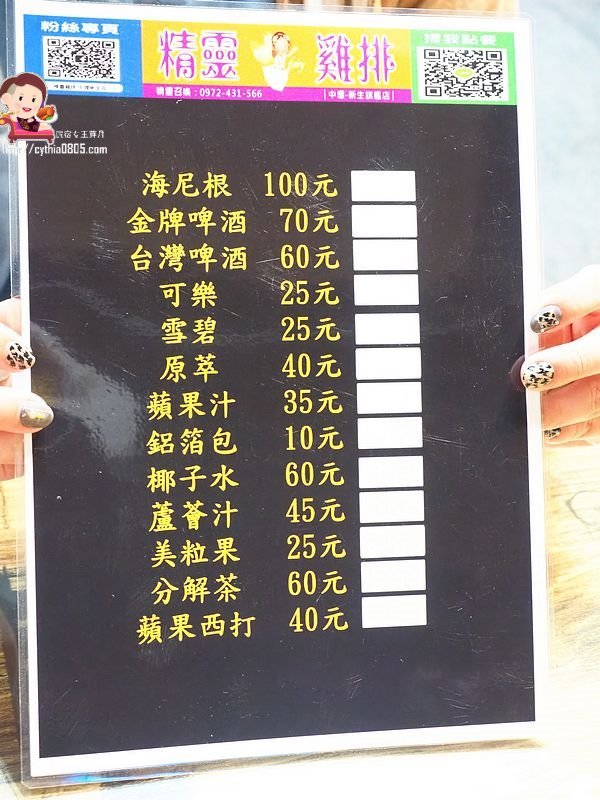 粉絲專頁
精靈雞排
掃我點餐
精靈召喚：0972-431-566
|中壢-新生旗艦店|
民宿女王芽月
http://cythia0805.com
海尼根 100元
金牌啤酒 70元
台灣啤酒 60元
可樂 25元
雪碧 25元
原萃 40元
蘋果汁 35元
鋁箔包 10元
椰子水 60元
蘆薈汁 45元
美粒果 25元
分解茶 60元
蘋果西打 40元